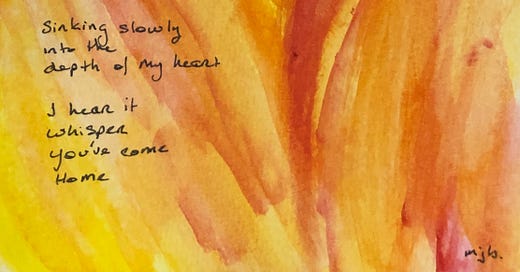 Sinking slowly
into the
depth of my heart
I hear it
whisper
you've come
Home
mjb.